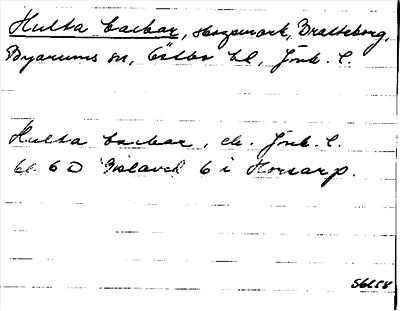 Hulta backar, skogsmark, Bratteborg,
Byarums sn, Östbo hd, Jönk. l.
Hulta backar, ek. Jönk. l.
bl. 6 D Gislaved 6 i Horsarp.